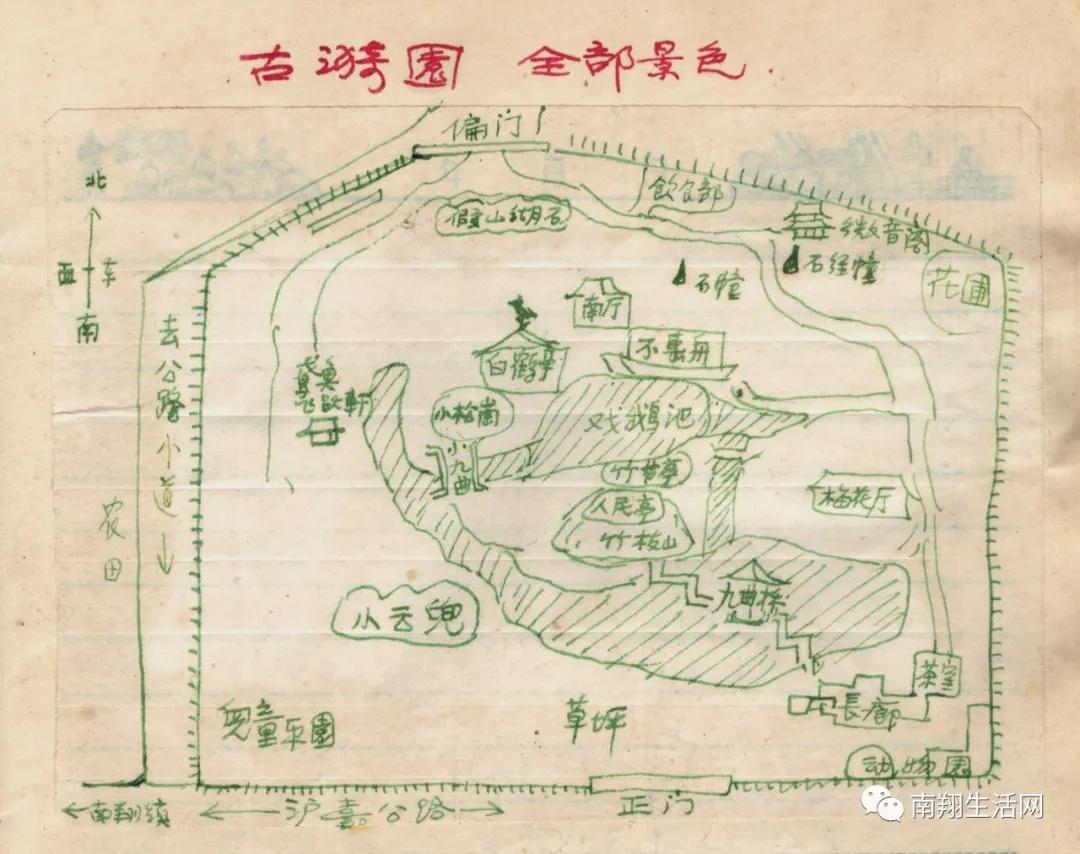 古漪園 全部景色.
偏门
北
西 东
南
飲食部
假山湖石
微音阁
石经幢
石幢
花圃
南厅
不系舟
白鶴亭
去公路小道
鳶飛魚躍軒
小松崗
戏鹅池
小九曲
竹苗亭
人民亭
竹枝山
梅花厅
农田
九曲桥
小云兜
茶室
長廊
兒童乐園
草坪
动物園
南翔镇
沪嘉公路
正门
南翔生活网